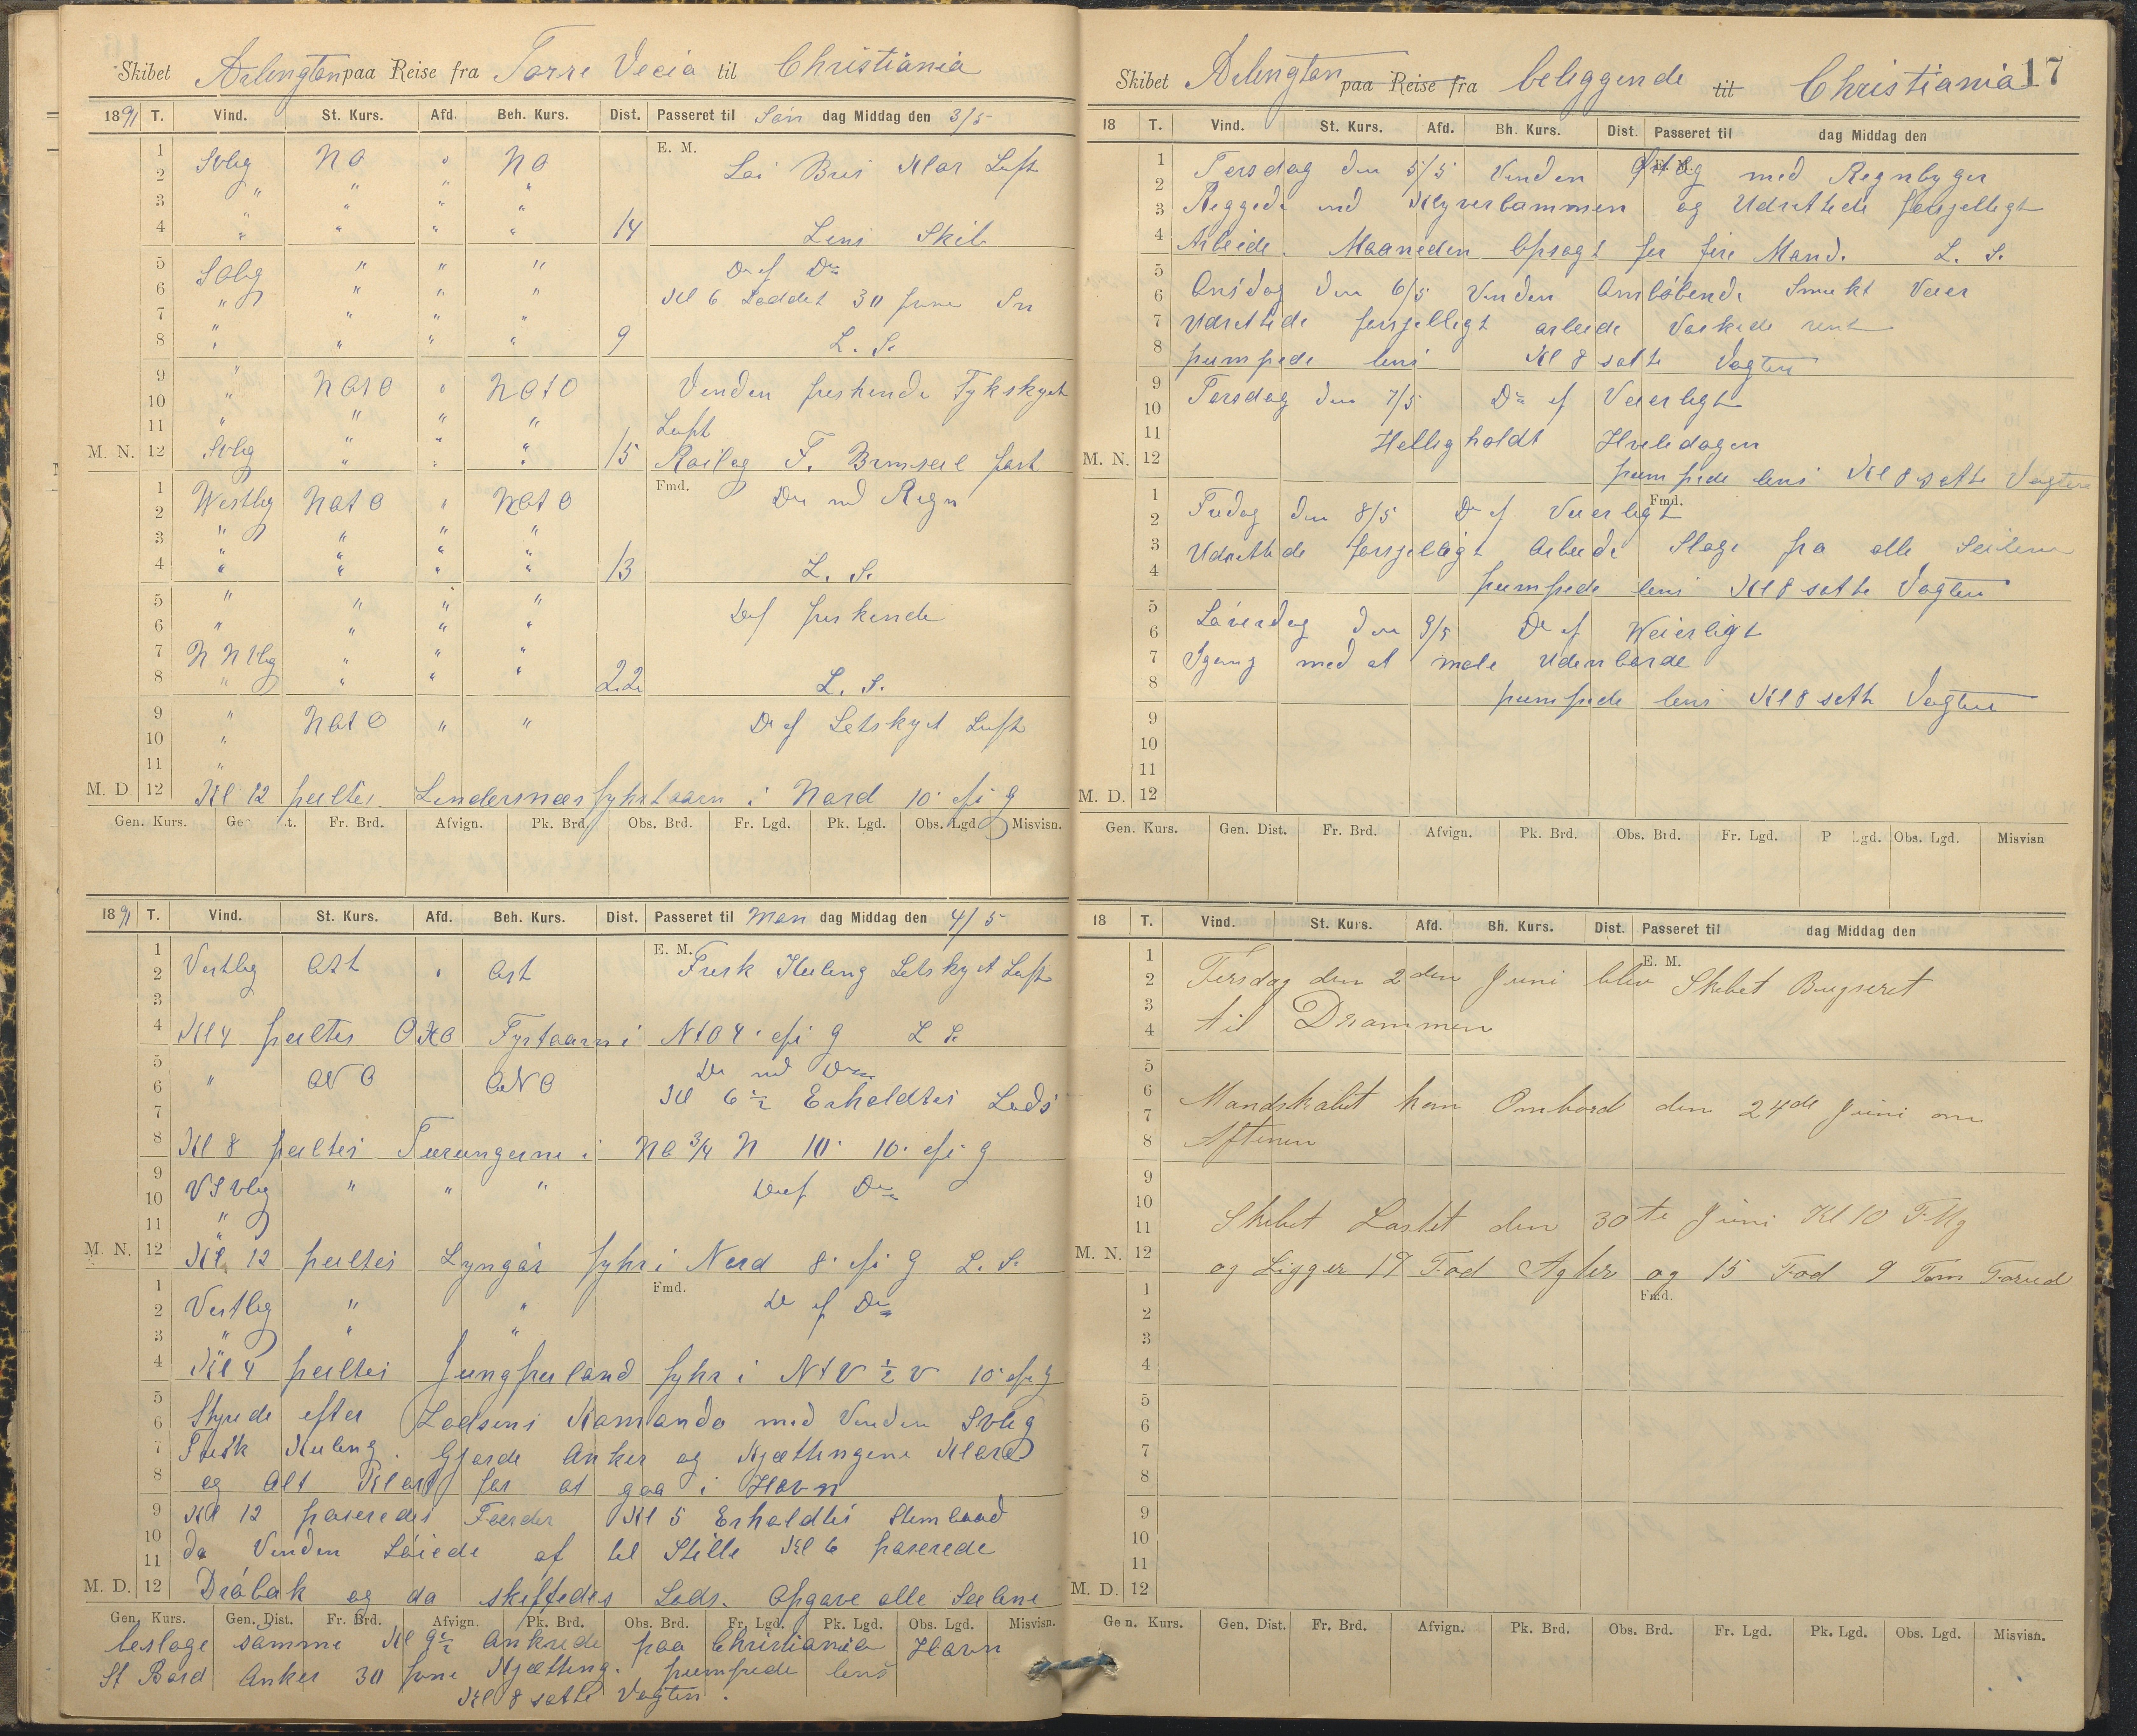 Skibet Arlington paa Reise fra Torre Vecia til Christiania
1891 T. Vind. St. Kurs. Afd. Beh. Kurs. Dist. Passeret til Søn dag Middag den 3/5
1 E. M.
2 Svlig NO " NO Lai Bris Klar Luft
3 " " " "
4 " " " " 14 Lens Skib
5 Solig " " " Do af Do
6 " " " " Kl 6 Loddet 30 favne
7 " " " "
8 " " " " 9 L. S.
9 "
10 " NOtO " NOtO Vinden friskende Tykskyet
11 " " " " Luft
M. N. 12 Svlig " " " 15 Røilog F. Bramseil fast
1 Fmd.
2 Westlig NOtO " NOtO Do med Regn
3 " " " "
4 " " " " 13 L. S.
5 " " " "
6 " " " " Do af friskende
7 " " "
8 " " " " 22 L. S.
9 " NOtO " " Do af Letskyet Luft
10 "
11 "
M. D. 12 Kl 12 peiltes Lindersnæs fyhrtaarn i Nord 10' afsig
Gen. Kurs. Ge t. Fr. Brd. Afvign. Pk. Brd. Obs. Brd. Fr. Lgd. Pk. Lgd. Obs. Lgd. Misvisn.
1891 T. Vind. St. Kurs. Afd. Beh. Kurs. Dist. Passeret til Man dag Middag den 4/5
1 E. M.
2 Vestlig Ost " Ost Frisk Kuling Letskyet Luft
3
4 Kl 4 peiltes Fyrtaarn i NtO 4' afsig L S.
5 Do med Do
6 " ONO ONO Kl 6 ½ Erholdtes Lods
7
8 Kl 8 peiltes Torungerne i NO ¾ N 10' afsig
9
10 VSvlig " " " Do af Do
11 "
M. N. 12 Kl 12 peiltes Lyngør fyhr i Nord 8' afsig L. S.
1 Fmd.
2 Vestlig " " Do af Do
3 " " "
4 Kl 4 peiltes Jungfruland fyhr i NtV ½ V 10' afsig
5
6 Styrede efter Lodsens Komando med Vinden Svlig
7 Frisk Kuling. Gjorde Anker og Kjættingene Klare
8 og Alt Klart for at gaa i Havn
9 Kl 12 paseredes Færder Kl 5 Erholdtes Slembaad
10 da Vinden Løiede af til Stille Kl 6 paserede
11
M. D. 12 Drøbak og da skiftedes Lods. Opgave alle Seilene
Gen. Kurs. Gen. Dist. Fr. Brd. Afvign. Pk. Brd. Obs. Brd. Fr. Lgd. Pk. Lgd. Obs. Lgd. Misvisn.
beslage samme Kl 9 ½ Ankrede paa Christiania Havn
St Bord Anker 30 favne Kjætting. pumpede lens
Kl 8 satte Vagten.
Skibet Arlington paa Reise fra beliggende til Christiania 17
18 T. Vind. St. Kurs. Afd. Bh. Kurs. Dist. Passeret til dag Middag den
1 E. M.
2 Tirsdag den 5/5 Vinden Østlig med Regnbyger
3 Riggede ind Klyverbommen og Udrettede forsjelligt
4 Arbeide. Maaneden Opsagt for fire Mand. L. S.
5
6 Onsdag den 6/5 Vinden Omløbende Smukt Veier
7 Udrettede forsjelligt arbeide Vaskede rent
8 pumpede lens Kl 8 satte Vagten
9
10 Torsdag den 7/5 Do af Veierligt
11 Helligholdt Hviledagen
M. N. 12 pumpede lens Kl 8 satte Vagten
1 Fmd.
2 Fredag den 8/5 Do af Veierligt
3 Udrettede forsjelligt Arbeide Sloge fra alle Seilene
4 pumpede lens Kl 8 satte Vagten
5
6 Løverdag den 9/5 Do af Weierligt
7 Igang med at male Udenborde
8 pumpede lens Kl 8 satte Vagten
9
10
11
M. D. 12
Gen. Kurs. Gen. Dist. Fr. Brd. Afvign. Pk. Brd. Obs. Brd. Fr. Lgd. P .gd. Obs. Lgd. Misvisn
18 T. Vind. St. Kurs. Afd. Bh. Kurs. Dist. Passeret til dag Middag den
1 E. M.
2 Tirsdag den 2den Juni blev Skibet Bugseret
3
4 til Drammen
5
6 Mandskabet kom Ombord den 24de Juni om
7
8 Aftenen
9
10
11 Skibet Lastet den 30te Juni Kl 10 F.Mg
M. N. 12 og Ligger 17 Fod Agter og 15 Fod 9 Tom Forud
1 Fmd.
2
3
4
5
6
7
8
9
10
11
M. D. 12
Gen. Kurs. Gen. Dist. Fr. Brd. Afvign. Pk. Brd. Obs. Brd. Fr. Lgd. Pk. Lgd. Obs. Lgd. Misvisn.